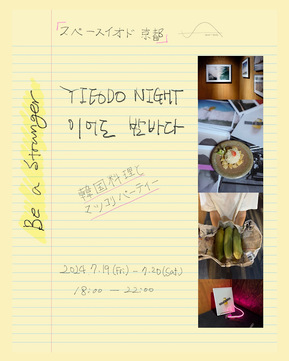 「スペースイオド 京都」
Be a Stranger
YIEODO NIGHT
이어도 밤바다
韓国料理と
マッコリパーティー
2024.7.19(Fri.) - 7.20(Sat.)
18:00 — 22:00